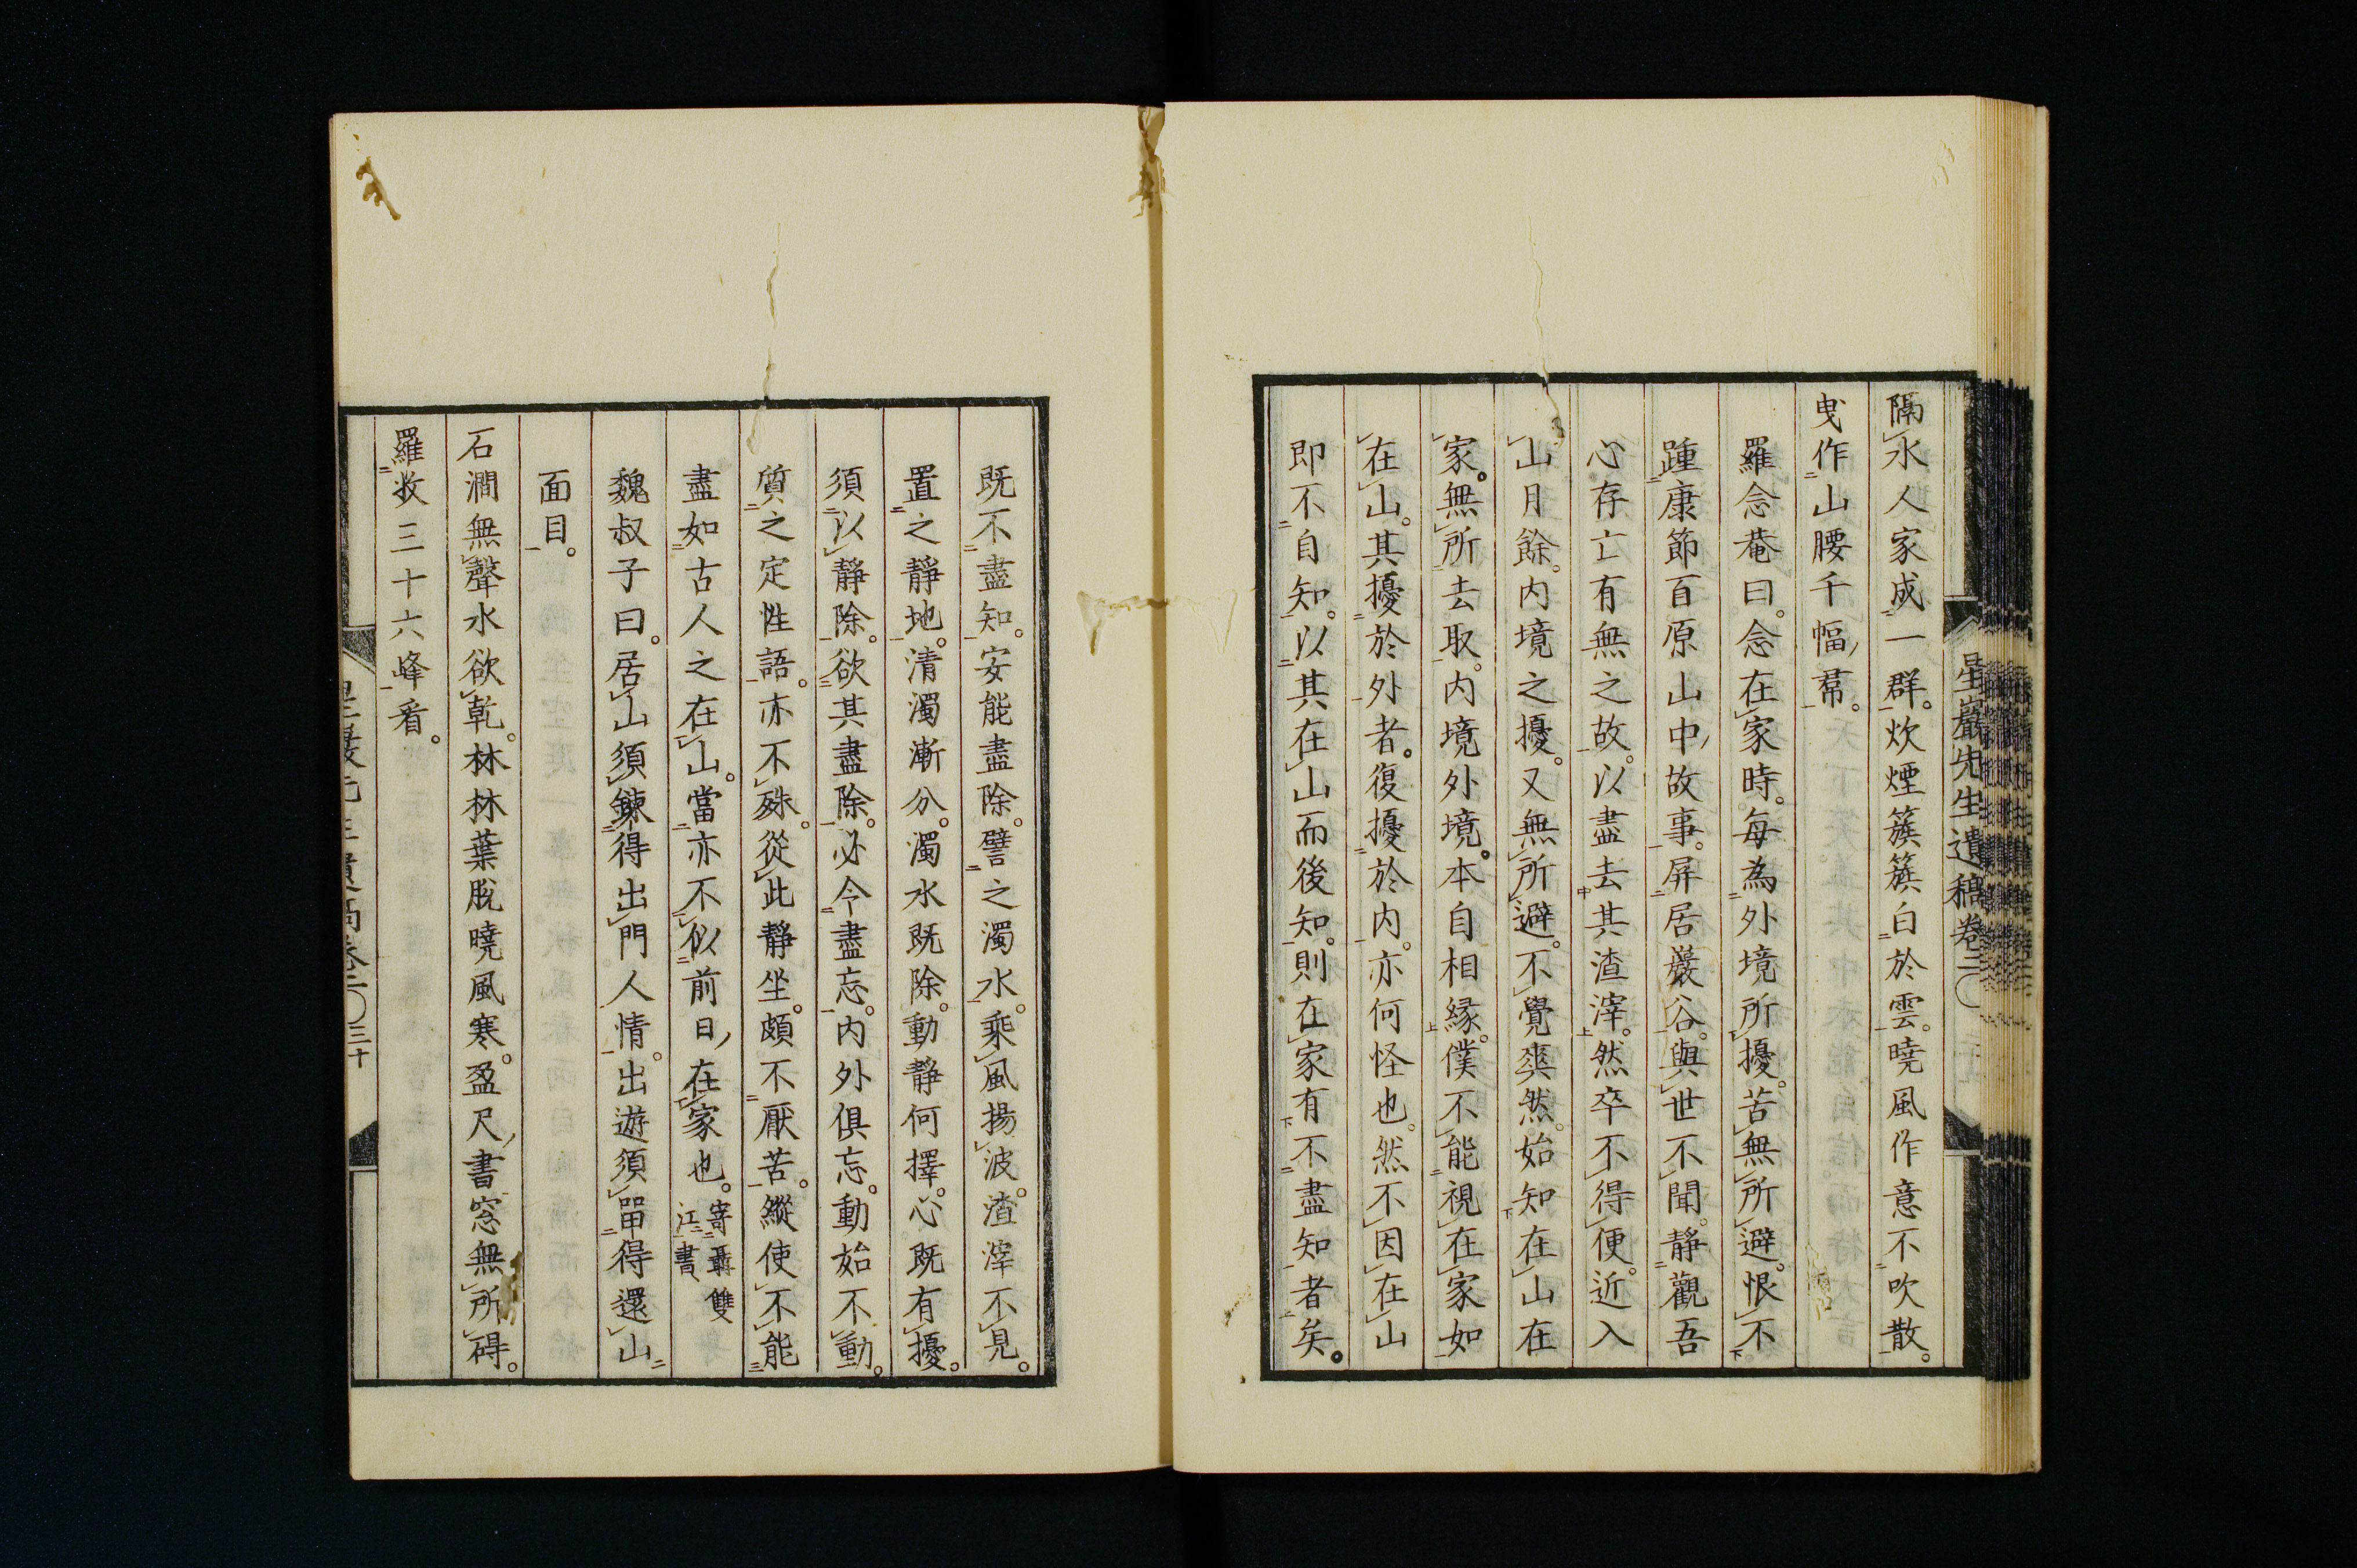 星巖先生遺稿卷二
隔水人家成一群。炊煙簇簇白於雲。曉風作意不吹散。
曵作山腰千幅帬。
羅念菴曰。念在家時。每為外境所擾。苦無所避。恨不
踵康節百原山中故事。屏居巖谷。與世不聞。靜觀吾
心存亡有無之故。以盡去其渣滓。然卒不得便。近入
山月餘。内境之擾。又無所避。不覺爽然。始知在山在
家。無所去取。内境外境。本自相縁。僕不能視在家如
在山。其擾於外者。復擾於内。亦何怪也。然不因在山
即不自知。以其在山而後知。則在家有不盡知者矣。
既不盡知。安能盡除。譬之濁水。乘風揚波。渣滓不見。
置之靜地。清濁漸分。濁水既除。動靜何擇。心既有擾。
須以靜除。欲其盡除。必令盡忘。内外俱忘。動始不動。
質之定性語。亦不殊。從此靜坐。頗不厭苦。縱使不能
盡如古人之在山。當亦不似前日在家也。寄聶雙
江書
魏叔子曰。居山須鍊得出門人情。出遊須畱得還山
面目。
石澗無聲水欲乾。林林葉脫曉風寒。盈尺書窓無所碍。
羅收三十六峰看。
三十